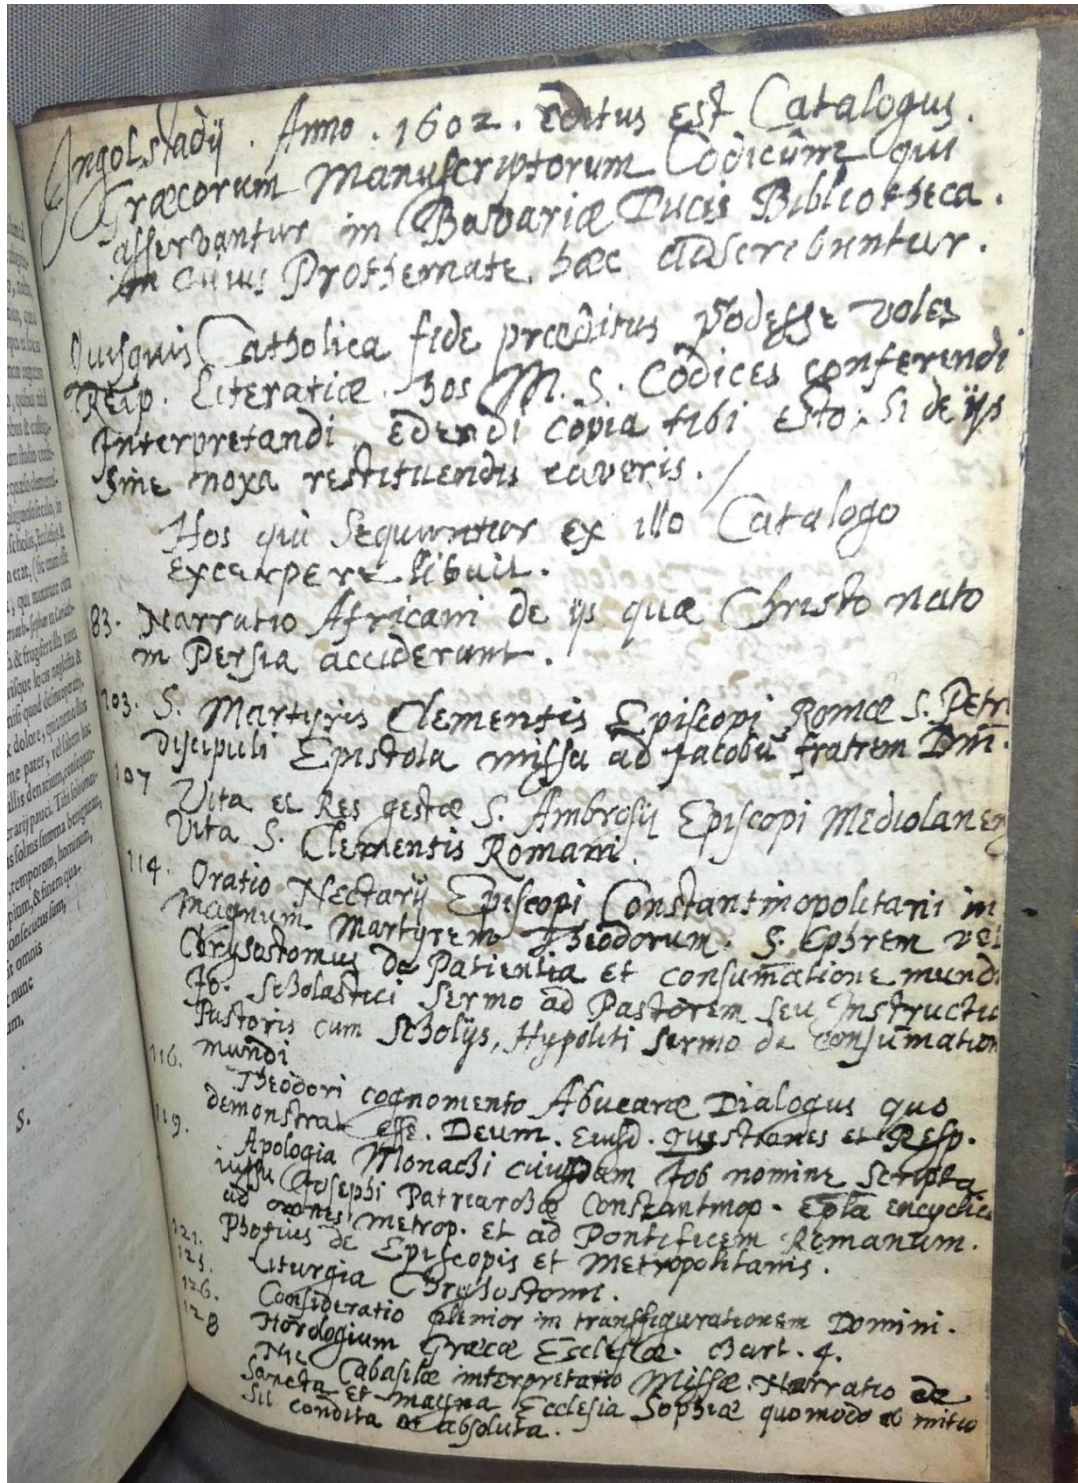 Ingolstadij. Anno. 1602. Editus est Catalogus.
Græcorum Manuscriptorum Codicum qui
asservantur in Bavariæ Ducis Bibliotheca.
In cuius Prothemate hæc adscribuntur.
Quisquis Catholica fide præditus prodesse voles
Reip. Literariæ. hos M. S. Codices conferendi
Interpretandi Edendi copia tibi esto. Si de ijs
sine noxa restituendis caveris.
Hos qui sequuntur ex illo Catalogo
Excerpere libuit.
83. Narratio Africani de ijs quæ Christo nato
in Persia acciderunt.
103. S. Martyris Clementis Episcopi Romæ S. Petri
discipuli Epistola missa ad Jacobū fratrem Dnī.
107 Vita et Res gestæ S. Ambrosij Episcopi Mediolanen
Vita S. Clementis Romani.
114. Oratio Nectarij Episcopi Constantinopolitani in
Magnum Martyrem Theodorum. S. Ephrem vel
Chrysostomus de Patientia et consumatione mundi
Jo. Scholastici sermo ad Pastorem seu Instructio
Pastoris cum scholijs, Hypoliti sermo de consumation
mundi
116. Theodori cognomento Abucaræ Dialogus quo
demonstrat esse. Deum. Eiusd. quæstiones et Resp.
119. Apologia Monachi cuiusdam Job nomine scripta
iussu Josephi Patriarchæ Constantinop. Epla encyclica
ad omnes metrop. et ad Pontificem Romanum.
121. Photius de Episcopis et Metropolitanis.
125. Liturgia Chrysostomi.
126. Consideratio plenior in transfigurationem Domini.
128 Horologium Græcæ Ecclesiæ. chart. 4.
Nic Cabasilæ interpretatio Missæ. Narratio de
Sancta et magna Ecclesia Sophiæ quomodo ab initio
sit condita et absoluta.